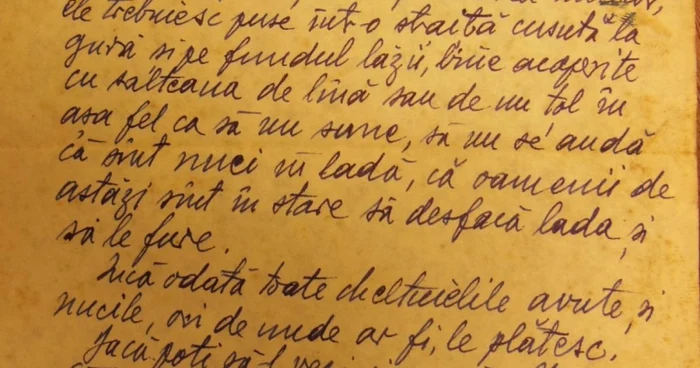 ele trebuiesc puse într-o straită cusută la
gură și pe fundul lăzii, bine acoperite
cu salteaua de lînă sau de un țol în
așa fel ca să nu sune, să nu se audă
că sînt nuci în ladă, că oamenii de
astăzi sînt în stare să desfacă lada, și
să le fure.
Încă odată toate cheltuielile avute, și
nucile, ori de unde ar fi, le plătesc.
Dacă poți să-l